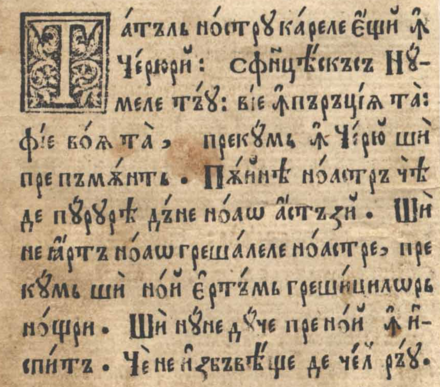 Татъль нострꙋ кареле є҆щй ꙟ҆
Чѐрюрй: Сфи҆нцѣскъсъ Нꙋ-
меле тъ́ꙋ: віе ꙟ҆пъръціѧ та̀:
фіе воѧ та̀, прекꙋмь ꙟ҆ Че́рю шѝ
пре пъмѫ́нть. Пѫ́йнѣ ноастръ чѣ
де пꙋ́рꙋрѣ дъ́не ноаѡ а҆стъзй. Шѝ
не ꙗ҆́ртъ но́аѡ греша́леле ноастре, пре
кꙋмь шѝ ной є҆ртъ́мь греши́цилѡрь
но́щри. Шѝ нꙋ́не дꙋ́че пре ной ꙟ҆ и҆-
спи́тъ. Чѐ не и҆збъвѣ́ще де че́л ръ́ꙋ.